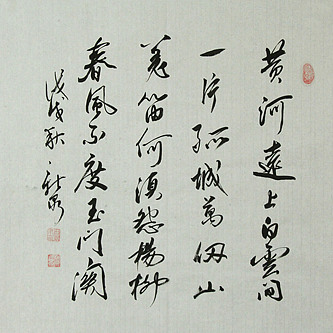 黄河遠上白雲間
一片孤城萬仞山
羌笛何須怨楊柳
春風不度玉門關
戊戌秋